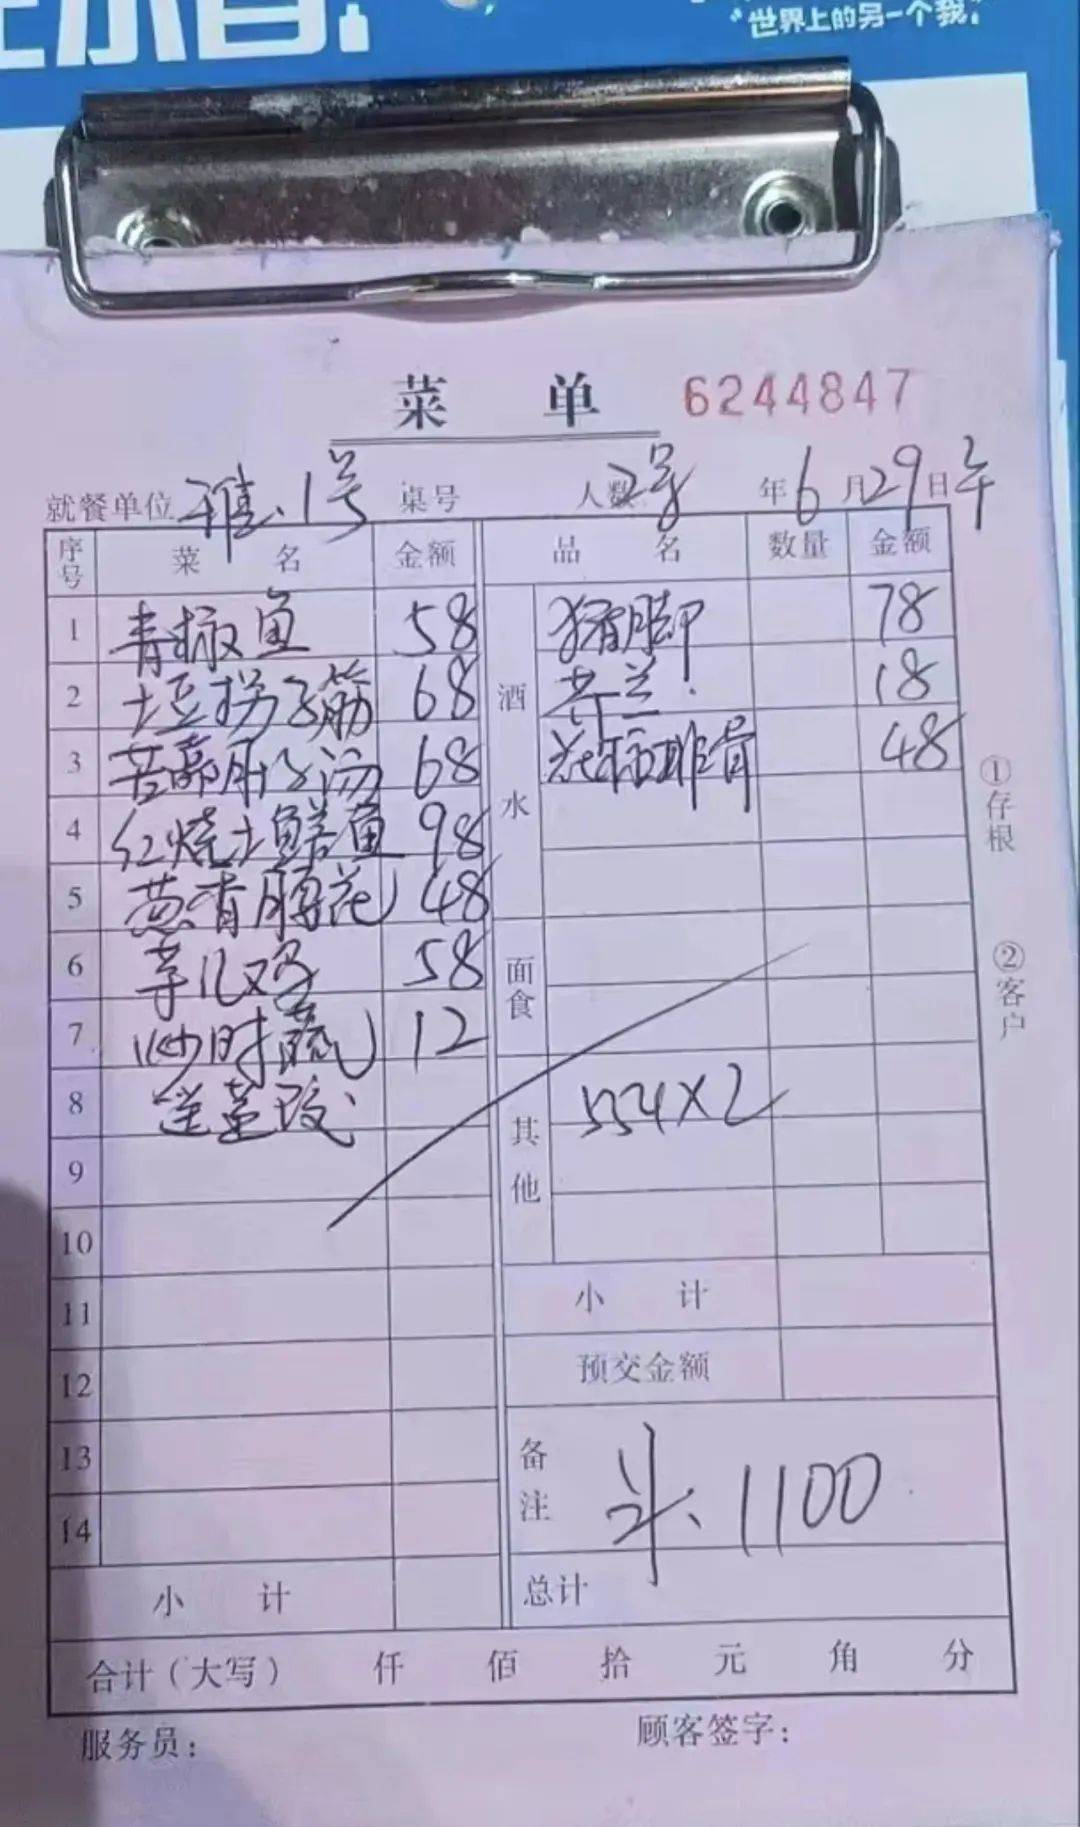 “世界上的另一个我”
菜 单 6244847
就餐单位 雅.1号 桌号 人数 2号 年6月29日午
序号 菜 名 金额 品 名 数量 金额
1 青椒鱼 58 酒水 猪脚 78
2 土豆拐子筋 68 芥兰 18
3 肚子汤 68 排骨 48
4 红烧土鳝鱼 98
5 葱香腰花 48
6 芋儿鸡 58 面食
7 炒时蔬 12
8 送 其他 554×2
9
10
11 小 计
12 预交金额
13 备注 斗.1100
14
小 计 总计
合计(大写) 仟 佰 拾 元 角 分
服务员: 顾客签字:
①存根
②客户